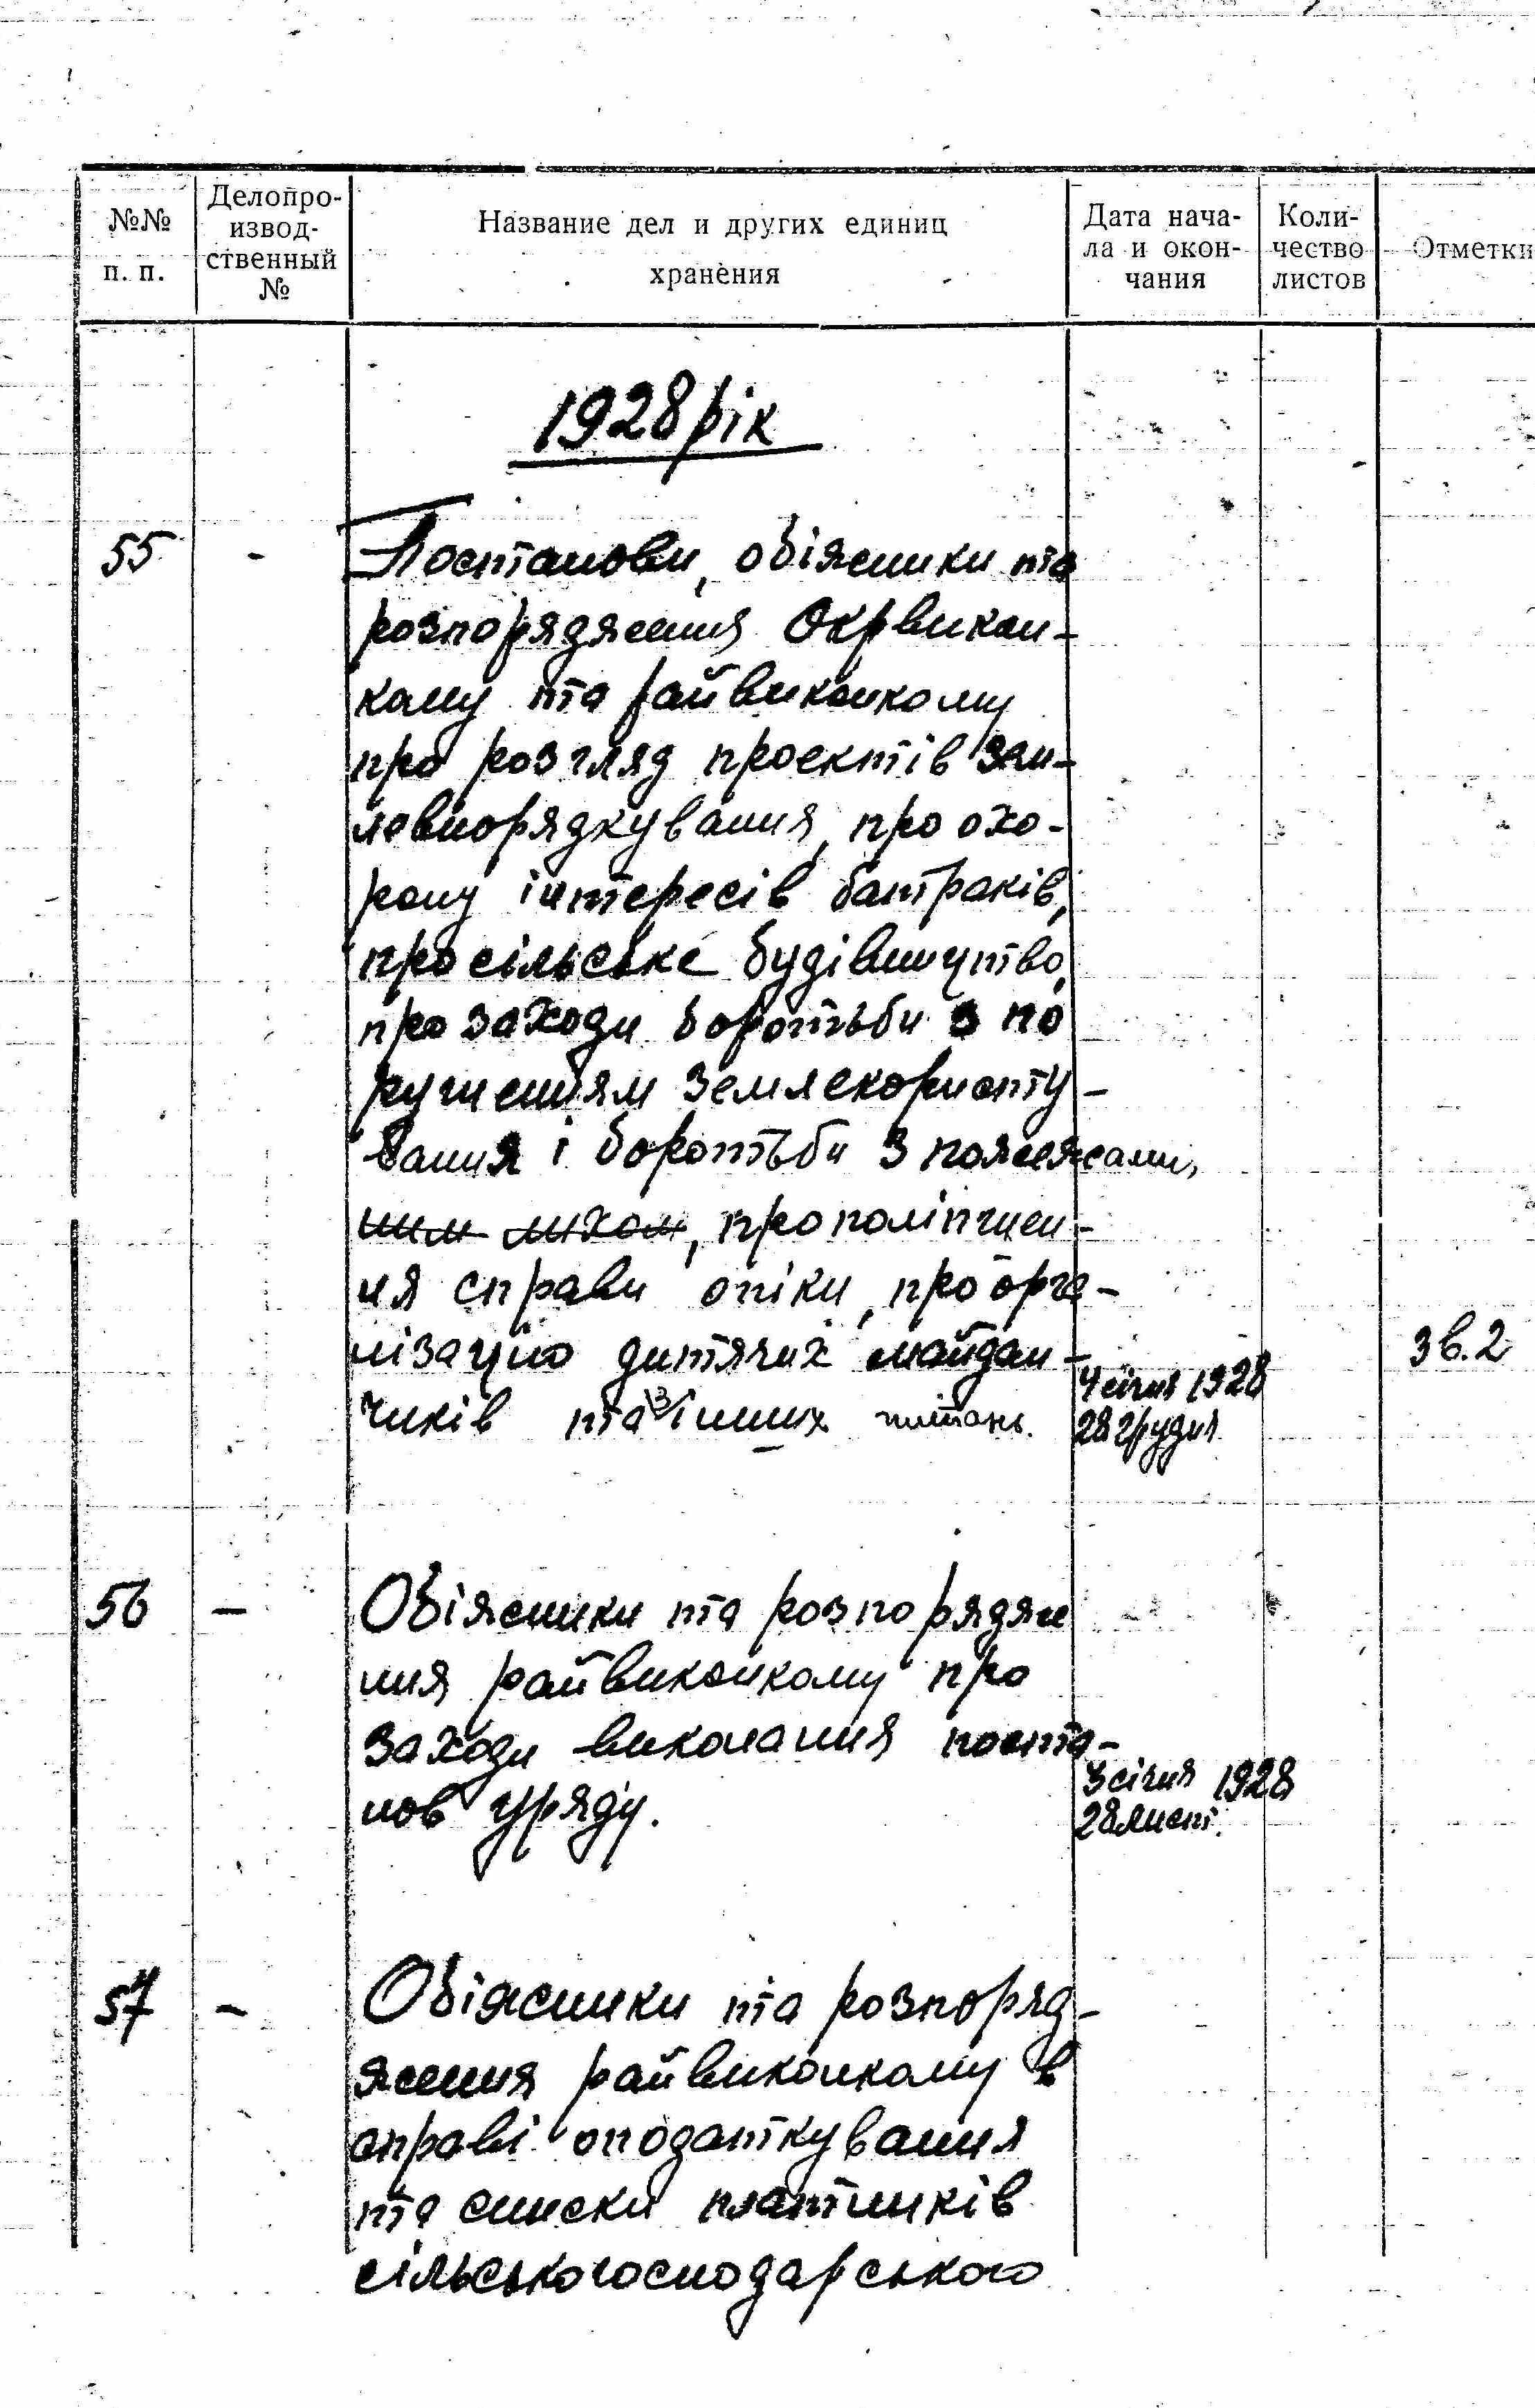 №№ п. п.
Делопро-
извод-
ственный
№
Название дел и других единиц
хранения
Дата нача-
ла и окон-
чания
Коли-
чество
листов
Отметки
1928 рік
55 -
Постанови, обіясники та
розпорядження Окрвикон-
кому та райвиконкому
про розгляд проектів зем-
левпорядкування, про охо-
рону інтересів батраків,
про сільське будівництво,
про заходи боротьби з по
рушенням землекористу-
вання і боротьби з пожежами,
ним лихом, про поліпшен-
ня справи опіки, про орга-
нізацію дитячих майдан-
чиків та з інших питань.
4 січня 1928
28 грудня
Зв. 2
56 -
Обіясники та розпорядже
ння райвиконкому про
заходи виконання поста-
нов уряду.
3 січня 1928
28 лист.
57 -
Обіясники та розпоряд-
ження райвиконкому в
справі оподаткування
та списки платників
сільськогосподарського